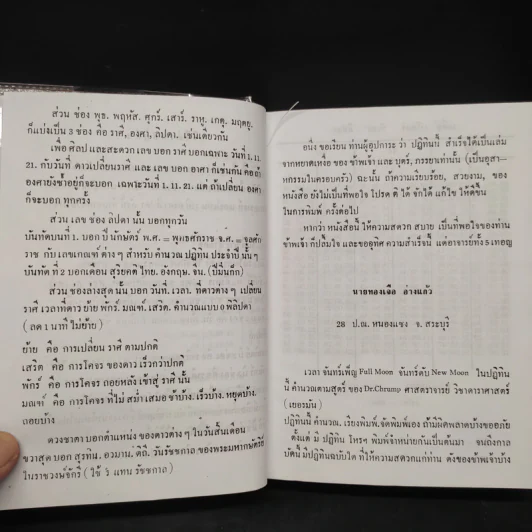 ส่วน ช่อง พุธ. พฤหัส. ศุกร์. เสาร์. ราหู. เกตุ. มฤตยู.
ก็แบ่งเป็น 3 ช่อง คือ ราศี, องศา, ลิปดา. เช่นเดียวกัน
เพื่อ ศิลป และสะดวก เลข บอก ราศี บอกเฉพาะ วันที่ 1. 11.
21. กับวันที่ ดาวเปลี่ยนราศี และ เลข บอก อาศา ก็เช่นกัน คือ ถ้า
องศายังซ้ำอยู่ก็จะบอก เฉพาะวันที่ 1. 11. 21. แต่ ถ้าเปลี่ยน องศา
ก็จะบอก ทุกครั้ง
ส่วน เลข ช่อง ลิปดา นั้น บอกทุกวัน
บันทัดบนที่ 1. บอก ปี นักษัตร์ พ.ศ. = พุทธศักราช จ.ศ. = จุลศัก
ราช กับ เลขเกณฑ์ ต่าง ๆ สำหรับ คำนวณ ปฏิทิน ประจำปี นั้น ๆ
บันทัด ที่ 2 บอกเดือน สุริยคติ ไทย. อังกฤษ. จีน. (ปีมีนกึก)
ส่วน ช่องล่างสุด นั้น บอก วันที่. เวลา. ที่ดาวต่าง ๆ เปลี่ยน
ราศี เวลาที่ดาว ย้าย พักร์. มณฑ์. เสริด. คำนวณแบบ 0 พิลิปดา
( ลด 1 นาที ไม่ย้าย)
ย้าย คือ การเปลี่ยน ราศี ตามปกติ
เสริด คือ การโคจร ของดาว เร็วกว่าปกติ
พักร์ คือ การโคจร ถอยหลัง เข้าสู่ ราศี นั้น
มณฑ์ คือ การโคจร ที่ไม่ สม่ำ เสมอ ช้าบ้าง. เร็วบ้าง. หยุดบ้าง.
ถอยบ้าง
ดวงชาตา บอกตำแหน่ง ของดาวต่าง ๆ ในวันสิ้นเดือน
ขวาสุด บอก สุรทิน. อวมาน. ดิถี. วันรัชชกาล ของพระมหากษัตริย์
ในราชวงษ์จักรี ( ใช้ ร แทน รัชชกาล )
อนึ่ง ขอเรียน ท่านผู้อุปการะ ว่า ปฏิทินนี้ สำเร็จได้เป็นเล่ม
จากหยาดเหงื่อ ของ ข้าพเจ้า และ บุตร์, ภรรยาเท่านั้น (เป็นอุตสา-
หกรรมในครอบครัว) ฉะนั้น ถ้าความเรียบร้อย, สวยงาม, ของ
หนังสือ ยังไม่เป็นที่พอใจ โปรด ติ ได้ จักได้ แก้ไข ให้ดีขึ้น
ในการพิมพ์ ครั้งต่อไป
หากว่า หนังสือนี้ ให้ความสดวก สบาย เป็นที่พอใจของท่าน
ข้าพเจ้า ก็ปลื้มใจ และขออุทิศ ความสำเร็จนี้ แด่อาจารย์ทั้ง 5 เทอญ
นายทองเจือ อ่างแก้ว
28 ป.ณ. หนองแซง จ. สระบุรี
เวลา จันทร์เพ็ญ Full Moon จันทร์ดับ New Moon ในปฏิทิน
นี้ คำนวณตามสูตร์ ของ Dr.Chrump ศาสตราจารย์ วิชาดาราศาสตร์
(เยอรมัน)
ปฏิทินนี้ คำนวณ. เรียงพิมพ์. จัดพิมพ์เอง ถ้ามีผิดพลาดบ้างขออภัย
ตั้งแต่ มี ปฏิทิน โหรฯ พิมพ์จำหน่ายกันเป็นต้นมา จนถึงกาล
บัดนี้ มี ปฏิทินฉบับใด ที่ให้ความสดวกแก่ท่าน ดังของข้าพเจ้าบ้าง